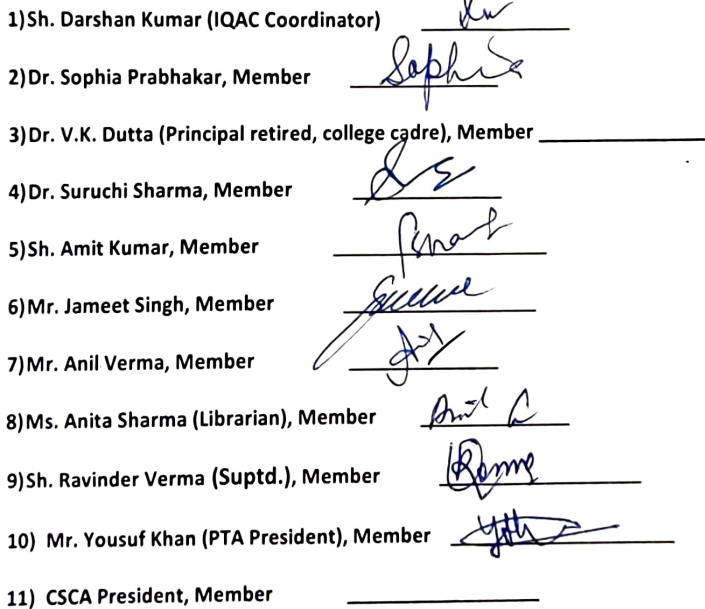 1)Sh. Darshan Kumar (IQAC Coordinator)
2)Dr. Sophia Prabhakar, Member Sophia
3)Dr. V.K. Dutta (Principal retired, college cadre), Member
4)Dr. Suruchi Sharma, Member
5)Sh. Amit Kumar, Member
6)Mr. Jameet Singh, Member
7)Mr. Anil Verma, Member
8)Ms. Anita Sharma (Librarian), Member
9)Sh. Ravinder Verma (Suptd.), Member
10) Mr. Yousuf Khan (PTA President), Member
11) CSCA President, Member